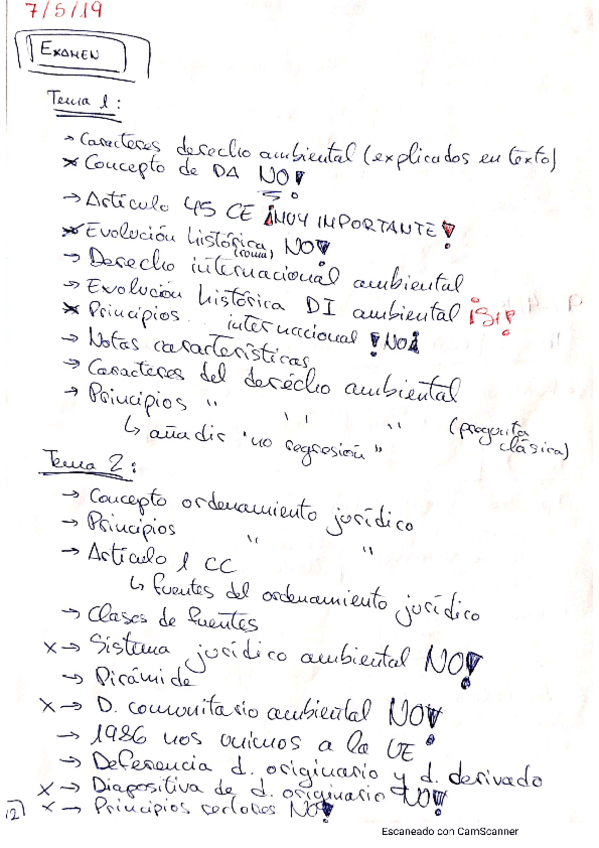 7/5/19
EXAMEN
Tema 1:
→ Caracteres derecho ambiental (explicados en texto)
x Concepto de DA NO!
→ Artículo 45 CE ¡MUY IMPORTANTE!
x Evolución histórica (roma), NO!
→ Derecho internacional ambiental
→ Evolución histórica DI ambiental ¡SI!
x Principios internacional ! NO!
→ Notas características
→ Caracteres del derecho ambiental
→ Principios " " " (pregunta clásica)
↳ añadir "no regresión"
Tema 2:
→ Concepto ordenamiento jurídico
→ Principios " "
→ Artículo 1 CC
↳ fuentes del ordenamiento jurídico
→ Clases de fuentes
x → Sistema jurídico ambiental NO!
→ Pirámide
x → D. comunitario ambiental NO!
→ 1986 nos unimos a la UE
→ Deferencia d. originario y d. derivado
x → Diapositiva de d. originario NO!
x → Principios rectores NO!
12
Escaneado con CamScanner